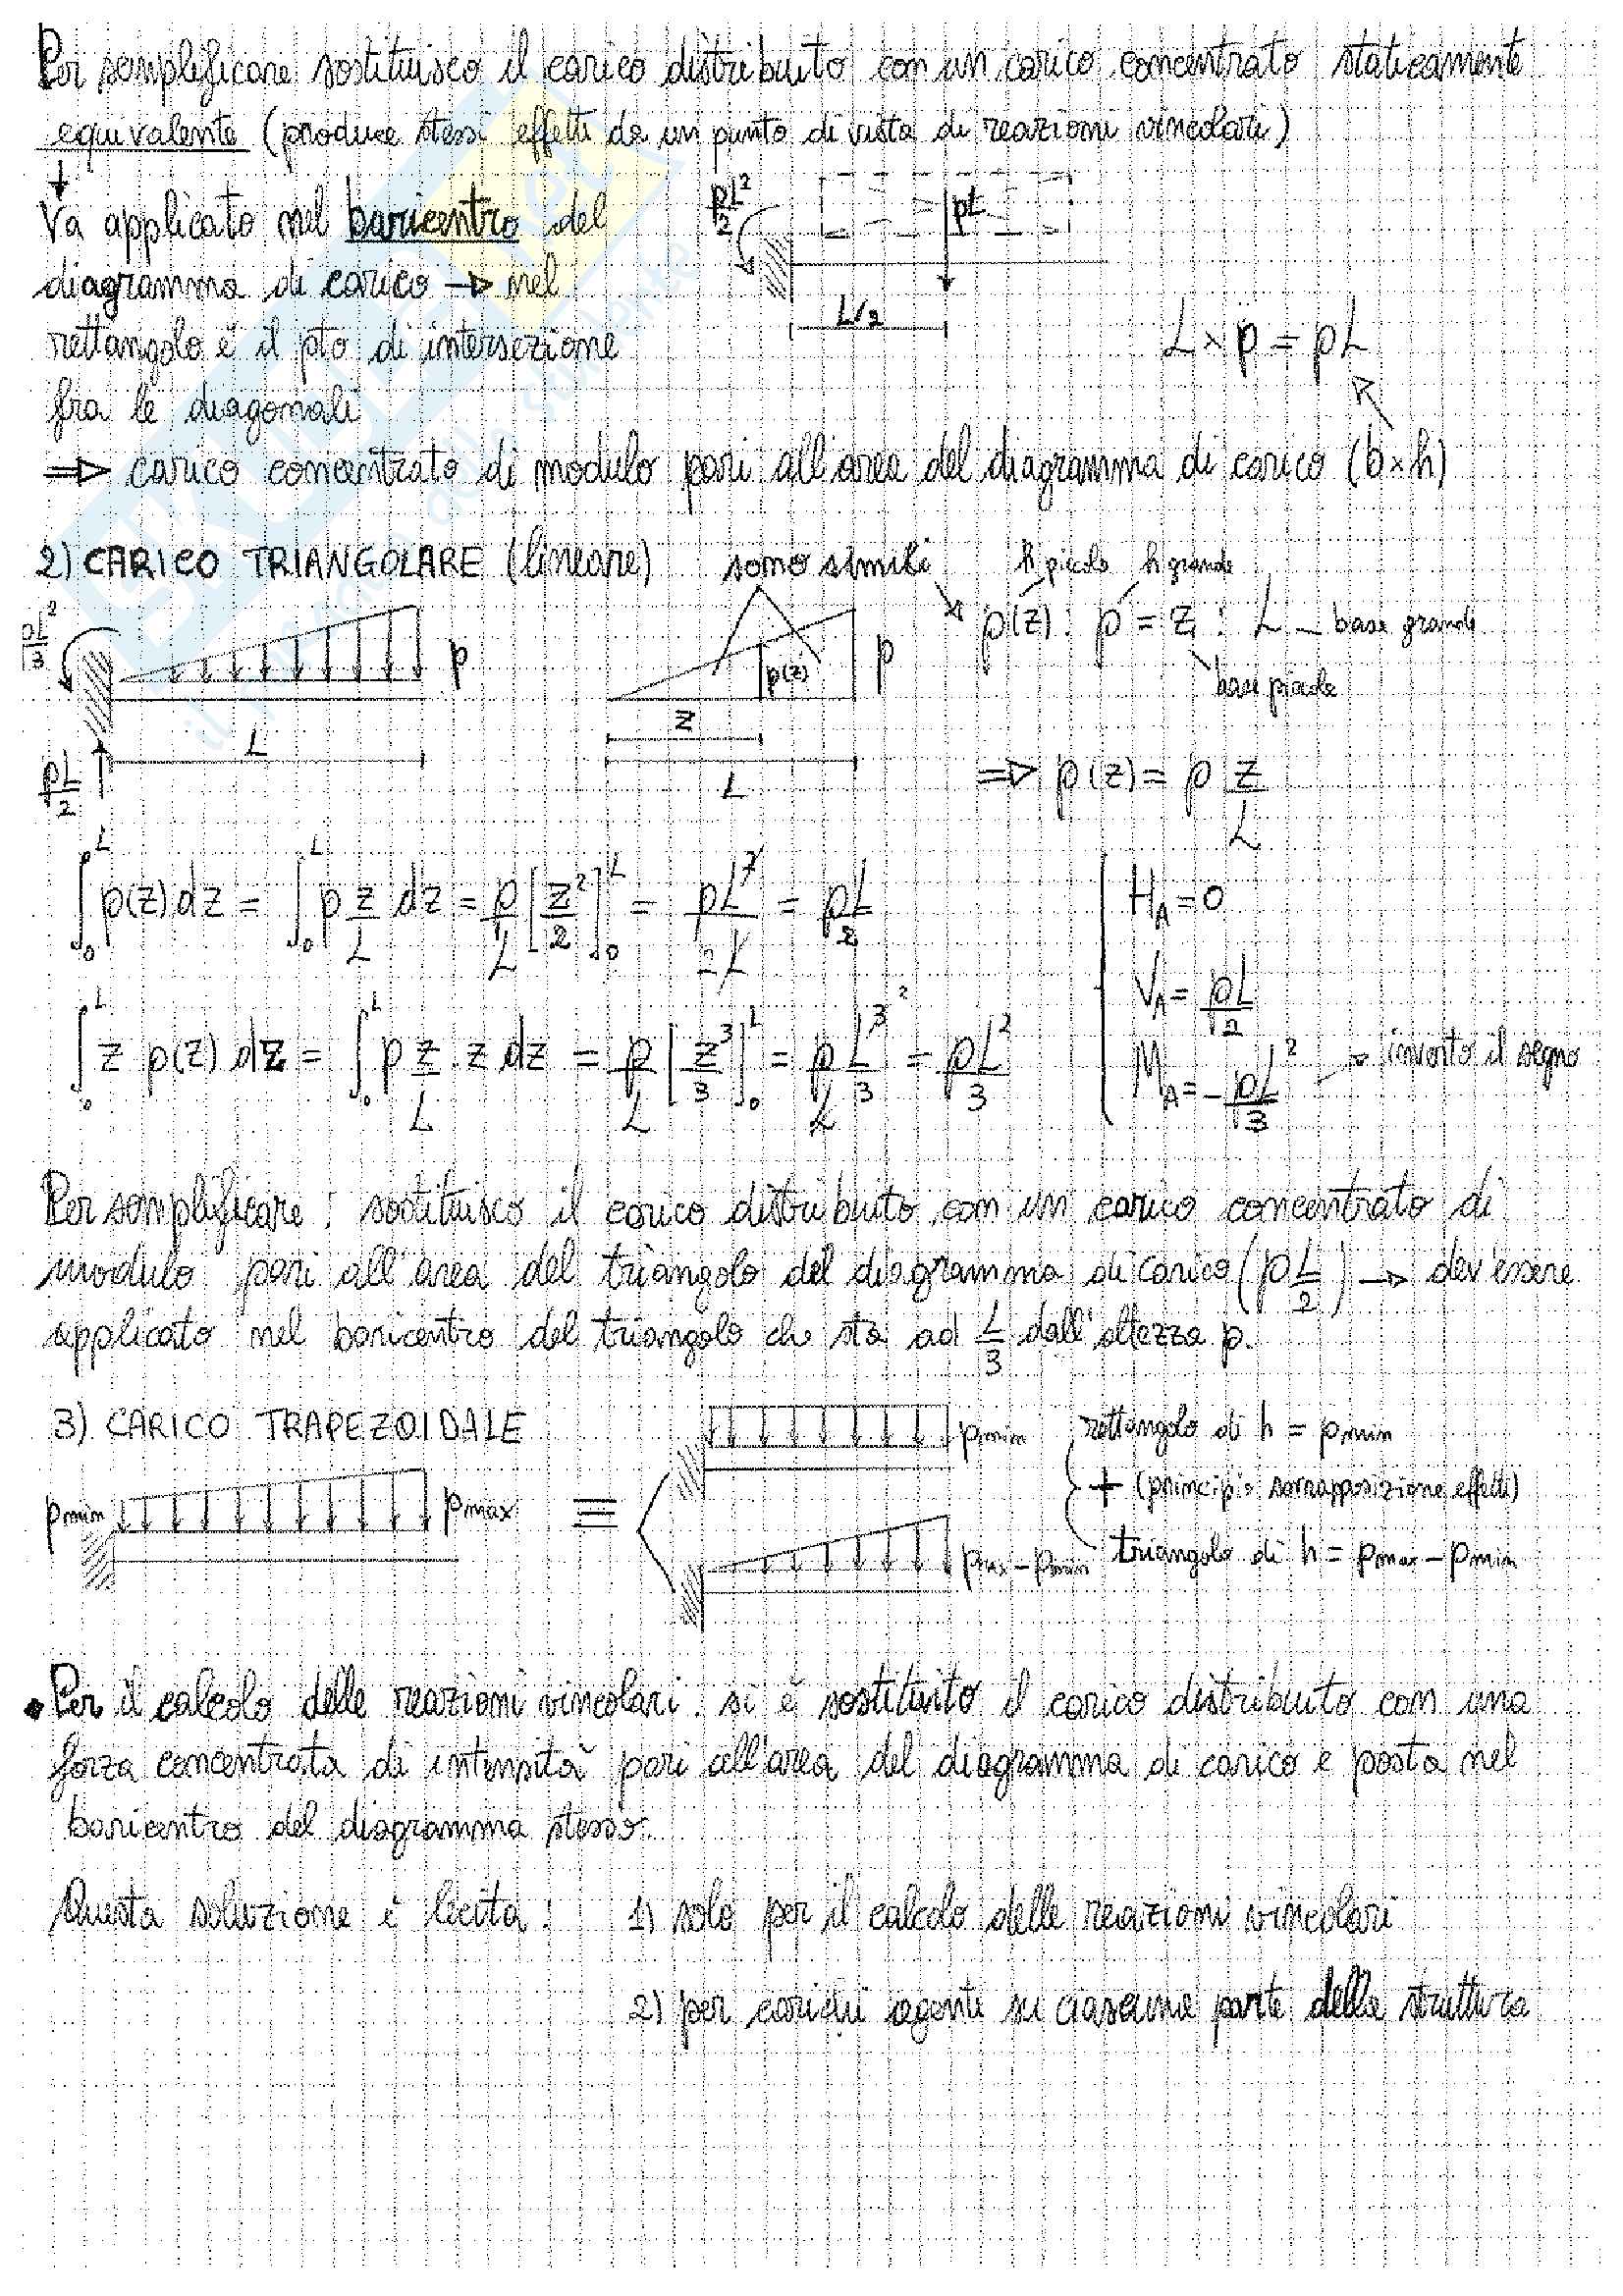 Per semplificare sostituisco il carico distribuito con un carico concentrato staticamente
equivalente (produce stessi effetti da un punto di vista di reazioni vincolari)
Va applicato nel baricentro del
diagramma di carico → nel
rettangolo è il pto di intersezione
fra le diagonali
pL²/2
pL
L/2
L × p = pL
⇒ carico concentrato di modulo pari all'area del diagramma di carico (b×h)
2) CARICO TRIANGOLARE (lineare)
sono simili
h piccolo h grande
p(z) : p = z : L – base grande
base piccola
pL²/3
p
L
pL/2
p(z)
p
z
L
⇒ p(z) = p z/L
∫₀ᴸ p(z) dz = ∫₀ᴸ p z/L dz = p/L [z²/2]₀ᴸ = pL²/2L = pL/2
∫₀ᴸ z p(z) dz = ∫₀ᴸ p z/L · z dz = p/L [z³/3]₀ᴸ = p/L L³/3 = pL²/3
H_A = 0
V_A = pL/2
M_A = - pL²/3 → inverto il segno
Per semplificare: sostituisco il carico distribuito con un carico concentrato di
modulo pari all'area del triangolo del diagramma di carico (pL/2) → dev'essere
applicato nel baricentro del triangolo che sta ad L/3 dall'altezza p.
3) CARICO TRAPEZOIDALE
pmin
pmax
≡
pmin
rettangolo di h = pmin
+ (principio sovrapposizione effetti)
pmax – pmin
triangolo di h = pmax – pmin
• Per il calcolo delle reazioni vincolari si è sostituito il carico distribuito con una
forza concentrata di intensità pari all'area del diagramma di carico e posta nel
baricentro del diagramma stesso.
Questa soluzione è lecita: 1) solo per il calcolo delle reazioni vincolari
2) per carichi agenti su ciascuna parte della struttura